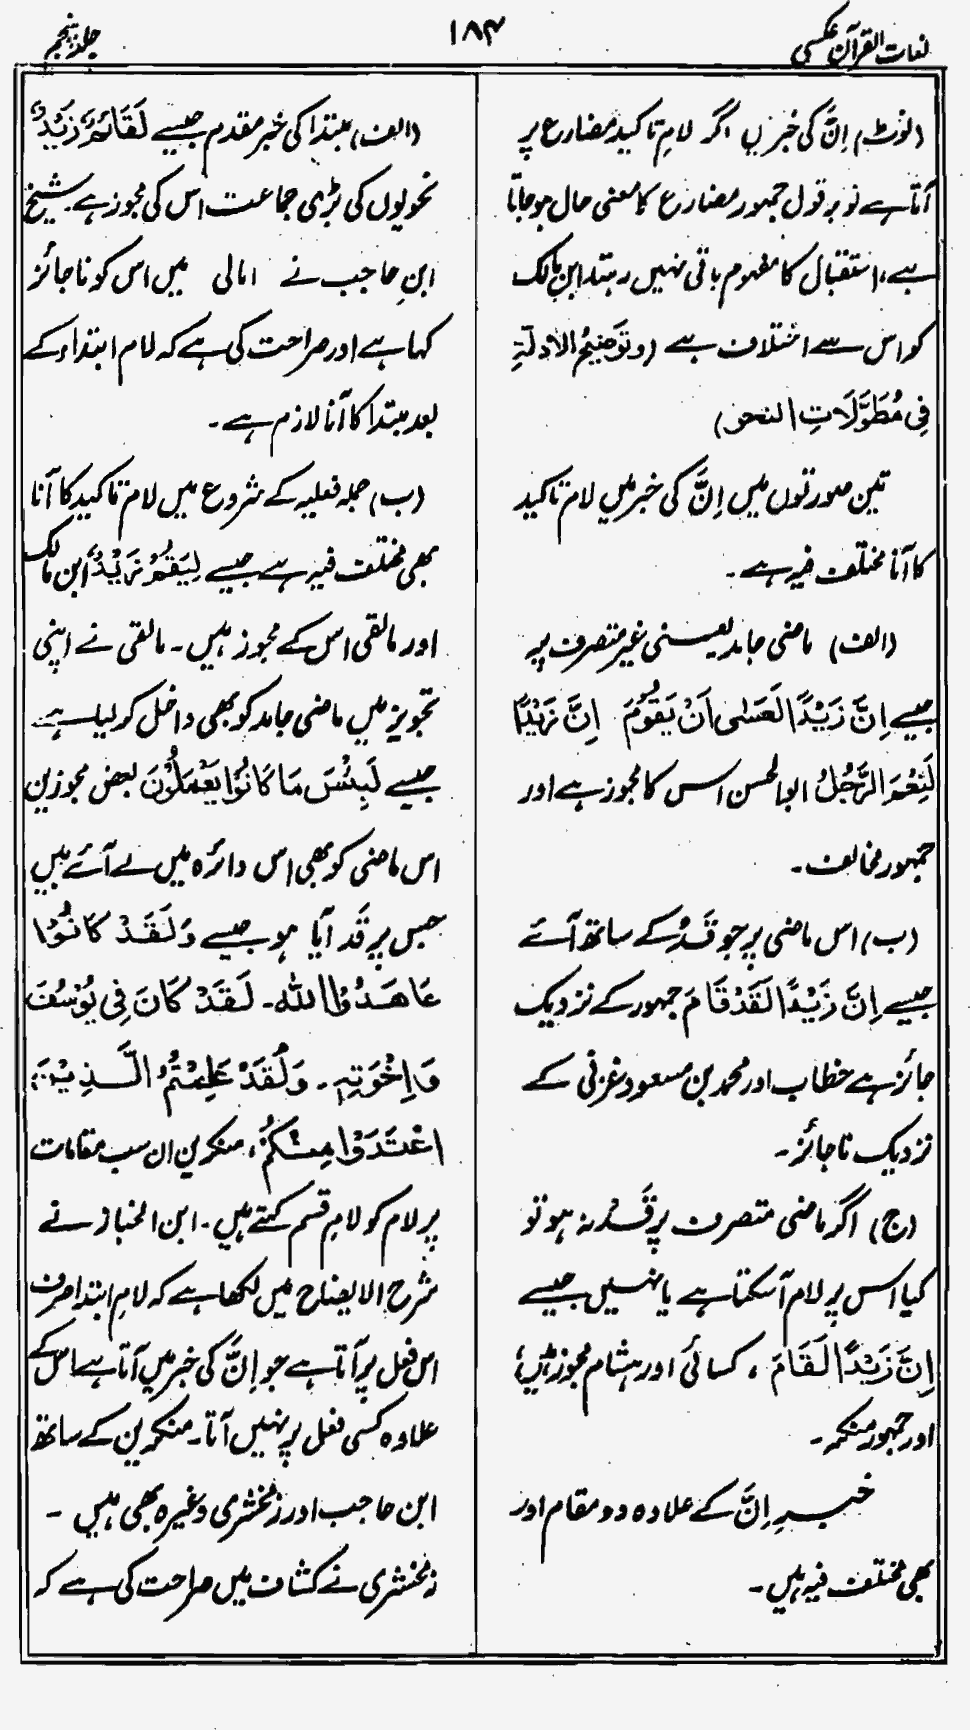 لغات القرآن عکسی
۱۸۴
جلد پنجم
(نوٹ) اِنَّ کی خبر میں اگر لامِ تاکید مضارع پر
آتا ہے تو بر قول جمہور مضارع کا معنی حال ہو جاتا
ہے، استقبال کا مفہوم باقی نہیں رہتا ابن مالک
کو اس سے اختلاف ہے (و توضیحُ الادلۃِ
فِی مُطَوَّلَاتِ النحو)
تین صورتوں میں اِنَّ کی خبر میں لام تاکید
کا آنا مختلف فیہ ہے۔
(الف) ماضی جامد یعنی غیر متصرف پر
جیسے اِنَّ زَیْدًا لَعَسٰی اَنْ یَقُوْمَ اِنَّ زَیْدًا
لَنِعْمَ الرَّجُلُ ابوالحسن اس کا مجوز ہے اور
جمہور مخالف۔
(ب) اس ماضی پر جو قَدْ کے ساتھ آئے
جیسے اِنَّ زَیْدًا لَقَدْ قَامَ جمہور کے نزدیک
جائز ہے خطاب اور محمد بن مسعود غزنی کے
نزدیک ناجائز۔
(ج) اگر ماضی متصرف پر قَدْ نہ ہو تو
کیا اس پر لام آسکتا ہے یا نہیں جیسے
اِنَّ زَیْدًا لَقَامَ، کسائی اور ہشام مجوز ہیں،
اور جمہور منکر۔
خبرِ اِنَّ کے علاوہ دو مقام اور
بھی مختلف فیہ ہیں۔
(الف) مبتدا کی خبر مقدم جیسے لَقَائِمٌ زَیْدٌ
نحویوں کی بڑی جماعت اس کی مجوز ہے۔ شیخ
ابنِ حاجب نے امالی میں اس کو ناجائز
کہا ہے اور صراحت کی ہے کہ لام ابتداء کے
بعد مبتدا کا آنا لازم ہے۔
(ب) جملہ فعلیہ کے شروع میں لام تاکید کا آنا
بھی مختلف فیہ ہے جیسے لِیَقُوْمُ زَیْدٌ، ابن مالک
اور مالقی اس کے مجوز ہیں۔ مالقی نے اپنی
تجویز میں ماضی جامد کو بھی داخل کر لیا ہے
جیسے لَبِئْسَ مَا کَانُوْا یَعْمَلُوْنَ بعض مجوزین
اس ماضی کو بھی اس دائرہ میں لے آئے ہیں
جس پر قَد آیا ہو جیسے وَلَقَدْ کَانُوْا
عَاھَدُوا اللّٰہَ۔ لَقَدْ کَانَ فِی یُوْسُفَ
وَاِخْوَتِہٖ۔ وَلَقَدْ عَلِمْتُمُ الَّذِیْنَ
اعْتَدَوْا مِنْکُمْ، منکرین ان سب مقامات
پر لام کو لام قسم کہتے ہیں۔ ابن الخباز نے
شرح الایضاح میں لکھا ہے کہ لامِ ابتدا صرف
اس فعل پر آتا ہے جو اِنَّ کی خبر میں آتا ہے اس کے
علاوہ کسی فعل پر نہیں آتا۔ منکرین کے ساتھ
ابن حاجب اور زمخشری وغیرہ بھی ہیں۔
زمخشری نے کشاف میں صراحت کی ہے کہ